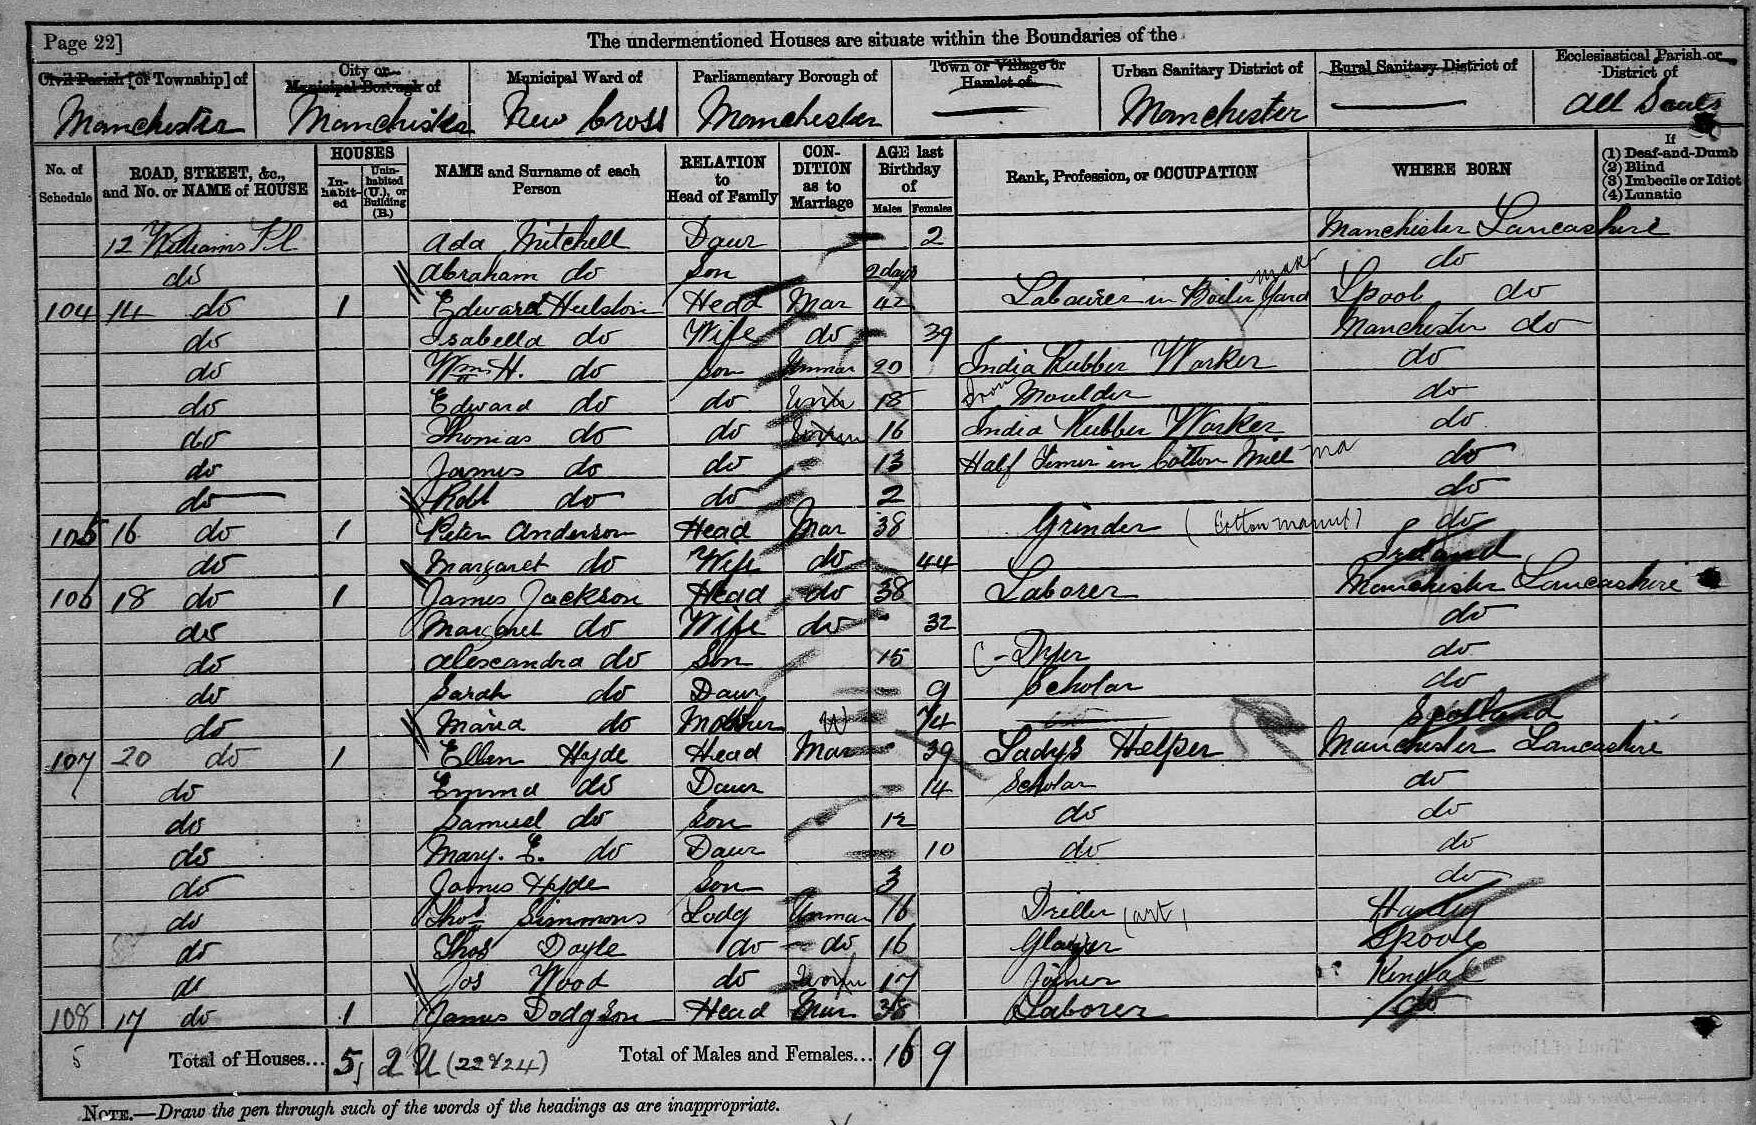 Page 22] The undermentioned Houses are situate within the Boundaries of the
Civil Parish [or Township] of City or Municipal Borough of Municipal Ward of Parliamentary Borough of Town or Village or Hamlet of Urban Sanitary District of Rural Sanitary District of Ecclesiastical Parish or District of
Manchester Manchester New Cross Manchester Manchester All Souls
No. of Schedule ROAD, STREET, &c., and No. or NAME of HOUSE HOUSES In-habit-ed Unin-habited (U.), or Building (B.) NAME and Surname of each Person RELATION to Head of Family CON-DITION as to Marriage AGE last Birthday of Males Females Rank, Profession, or OCCUPATION WHERE BORN If (1) Deaf-and-Dumb (2) Blind (3) Imbecile or Idiot (4) Lunatic
12 Williams Pl Ada Mitchell Daur 2 Manchester Lancashire
do Abraham do Son 2 days do
104 14 do 1 Edward Hulston Head Mar 42 Labourer in Boiler Yard maker Lpool do
do Isabella do Wife do 39 Manchester do
do Wm H. do Son Unmar 20 India Rubber Worker do
do Edward do do 18 Iron Moulder do
do Thomas do do 16 India Rubber Worker do
do James do do 13 Half Timer in Cotton Mill ma do
do Robt do do 2 do
105 16 do 1 Peter Anderson Head Mar 38 Grinder (Cotton manuf) do
do Margaret do Wife do 44 Ireland
106 18 do 1 James Jackson Head do 38 Laborer Manchester Lancashire
do Margaret do Wife do 32 do
do Alexandra do Son 15 C - Dyer do
do Sarah do Daur 9 Scholar do
do Maria do Mother W 74 Scotland
107 20 do 1 Ellen Hyde Head Mar 39 Ladys Helper Manchester Lancashire
do Emma do Daur 14 Scholar do
do Samuel do Son 12 do do
do Mary. E. do Daur 10 do do
do James Hyde Son 3 do
do Thos Simmons Lodg Unmar 16 Driller (art) Hanley
do Thos Doyle do do 16 Glazier Lpool
do Jos Wood do 17 Joiner Kendal
108 17 do 1 James Dodgson Head Mar 38 Laborer do
5 Total of Houses... 5 2 U (22 & 24) Total of Males and Females... 16 9
NOTE.—Draw the pen through such of the words of the headings as are inappropriate.